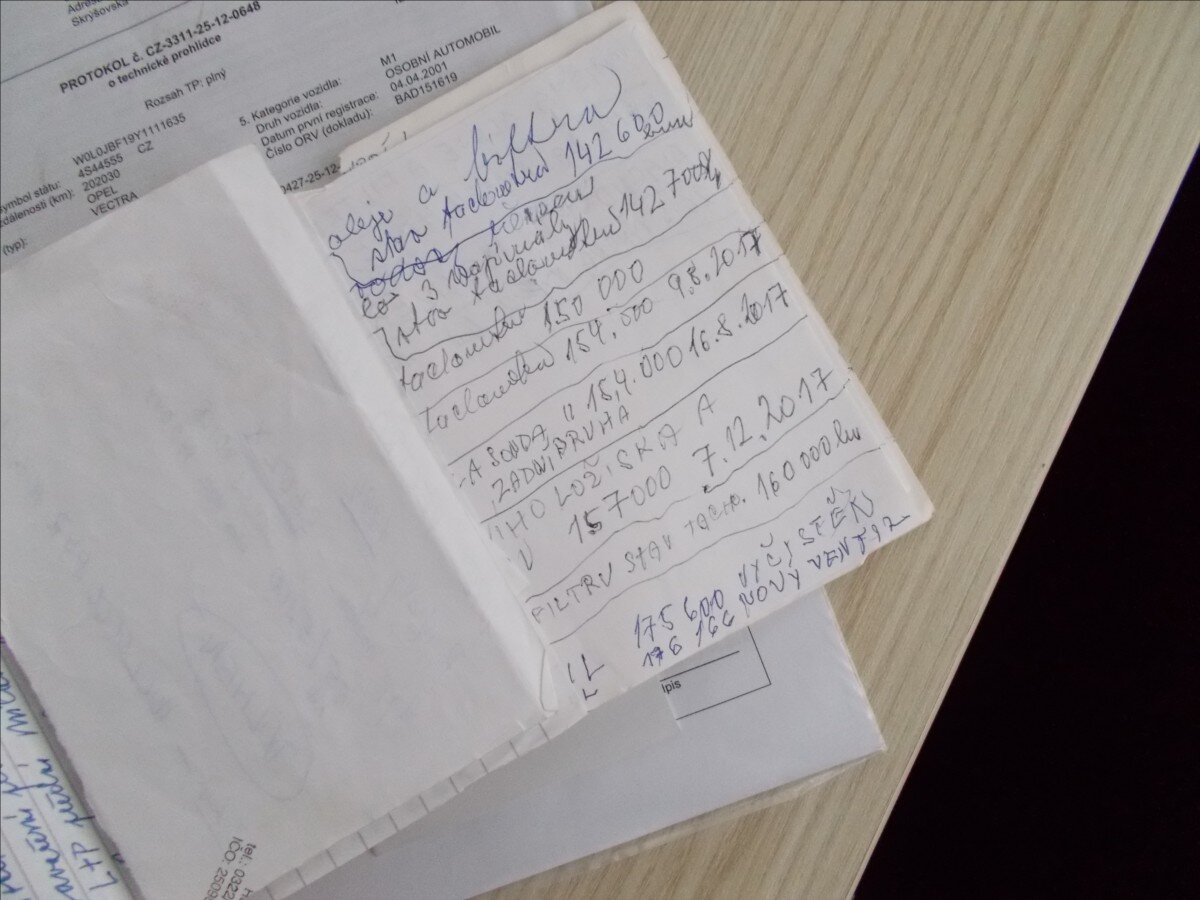 Adres
Skryšovská
PROTOKOL č. CZ-3311-25-12-0648
o technické prohlídce
Rozsah TP: plný
symbol státu:
zdálenosti (km):
(typ):
W0L0JBF19Y1111635
4S44555 CZ
202030
OPEL
VECTRA
5. Kategorie vozidla:
Druh vozidla:
Datum první registrace:
Číslo ORV (dokladu):
M1
OSOBNÍ AUTOMOBIL
04.04.2001
BAD151619
0427-25-12-
oleje a filtru
stav tachometru 142 600
3
stav tachometru 142 700
tachometru 150 000
tachometru 154.000 9.8.2017
A SONDA 154.000 16.8.2017
ZADNÍ DRUHÁ
HO LOŽISKA A
157000 7.12.2017
FILTRU STAV TACHO. 160 000 km
175 600 VYČISTĚN
176 166 NOVÝ VENTIL
IL
L
lpis
tel.: 0322
IČO: 2509
L+P